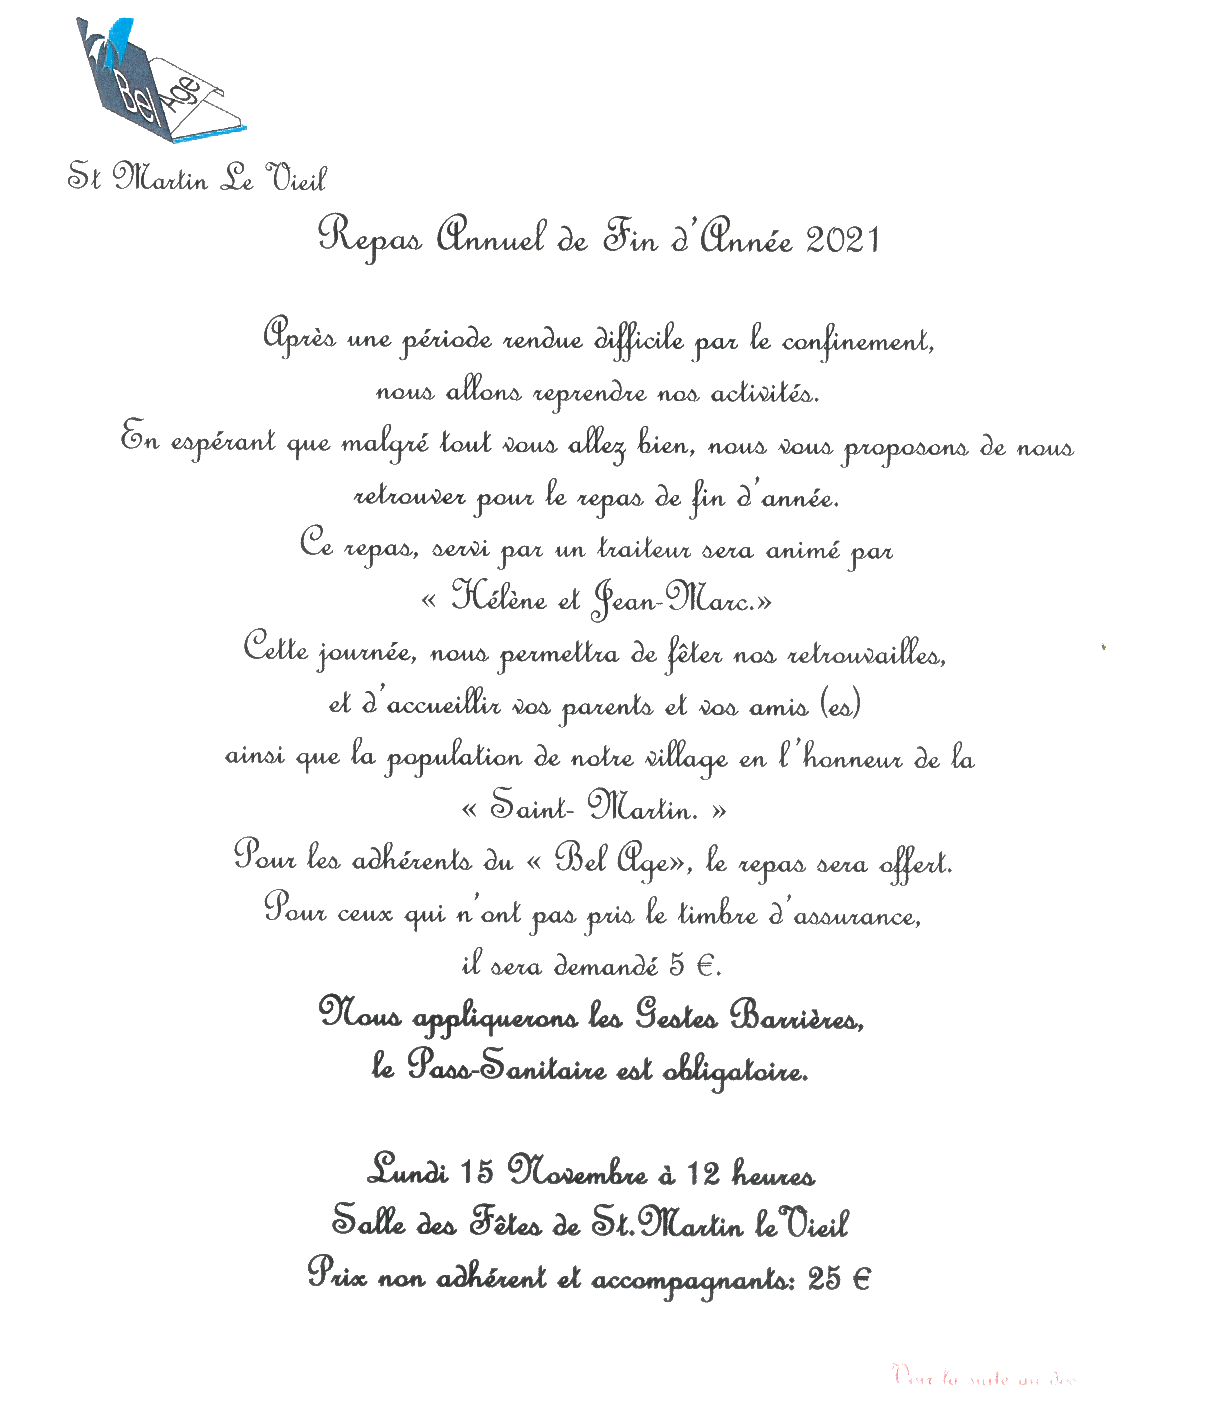 Bel Age
St Martin Le Vieil
Repas Annuel de Fin d'Année 2021
Après une période rendue difficile par le confinement,
nous allons reprendre nos activités.
En espérant que malgré tout vous allez bien, nous vous proposons de nous
retrouver pour le repas de fin d'année.
Ce repas, servi par un traiteur sera animé par
« Hélène et Jean-Marc.»
Cette journée, nous permettra de fêter nos retrouvailles,
et d'accueillir vos parents et vos amis (es)
ainsi que la population de notre village en l'honneur de la
« Saint- Martin. »
Pour les adhérents du « Bel Age», le repas sera offert.
Pour ceux qui n'ont pas pris le timbre d'assurance,
il sera demandé 5 €.
Nous appliquerons les Gestes Barrières,
le Pass-Sanitaire est obligatoire.
Lundi 15 Novembre à 12 heures
Salle des Fêtes de St.Martin le Vieil
Prix non adhérent et accompagnants: 25 €
Voir la suite au dos